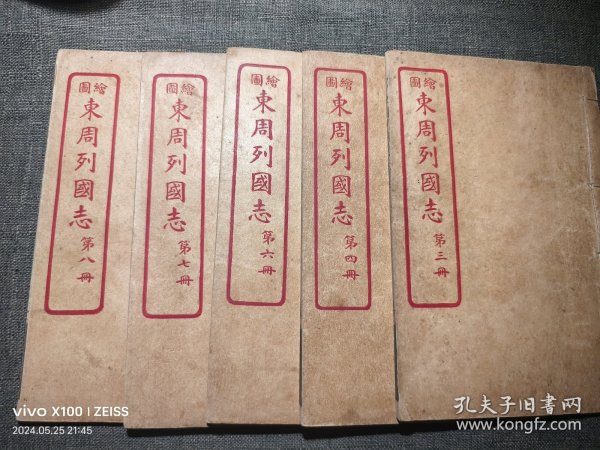 繪圖
東周列國志
第三冊
繪圖
東周列國志
第四冊
繪圖
東周列國志
第六冊
繪圖
東周列國志
第七冊
繪圖
東周列國志
第八冊
vivo X100 | ZEISS
2024.05.25 21:45
孔夫子旧書网
www.kongfz.com